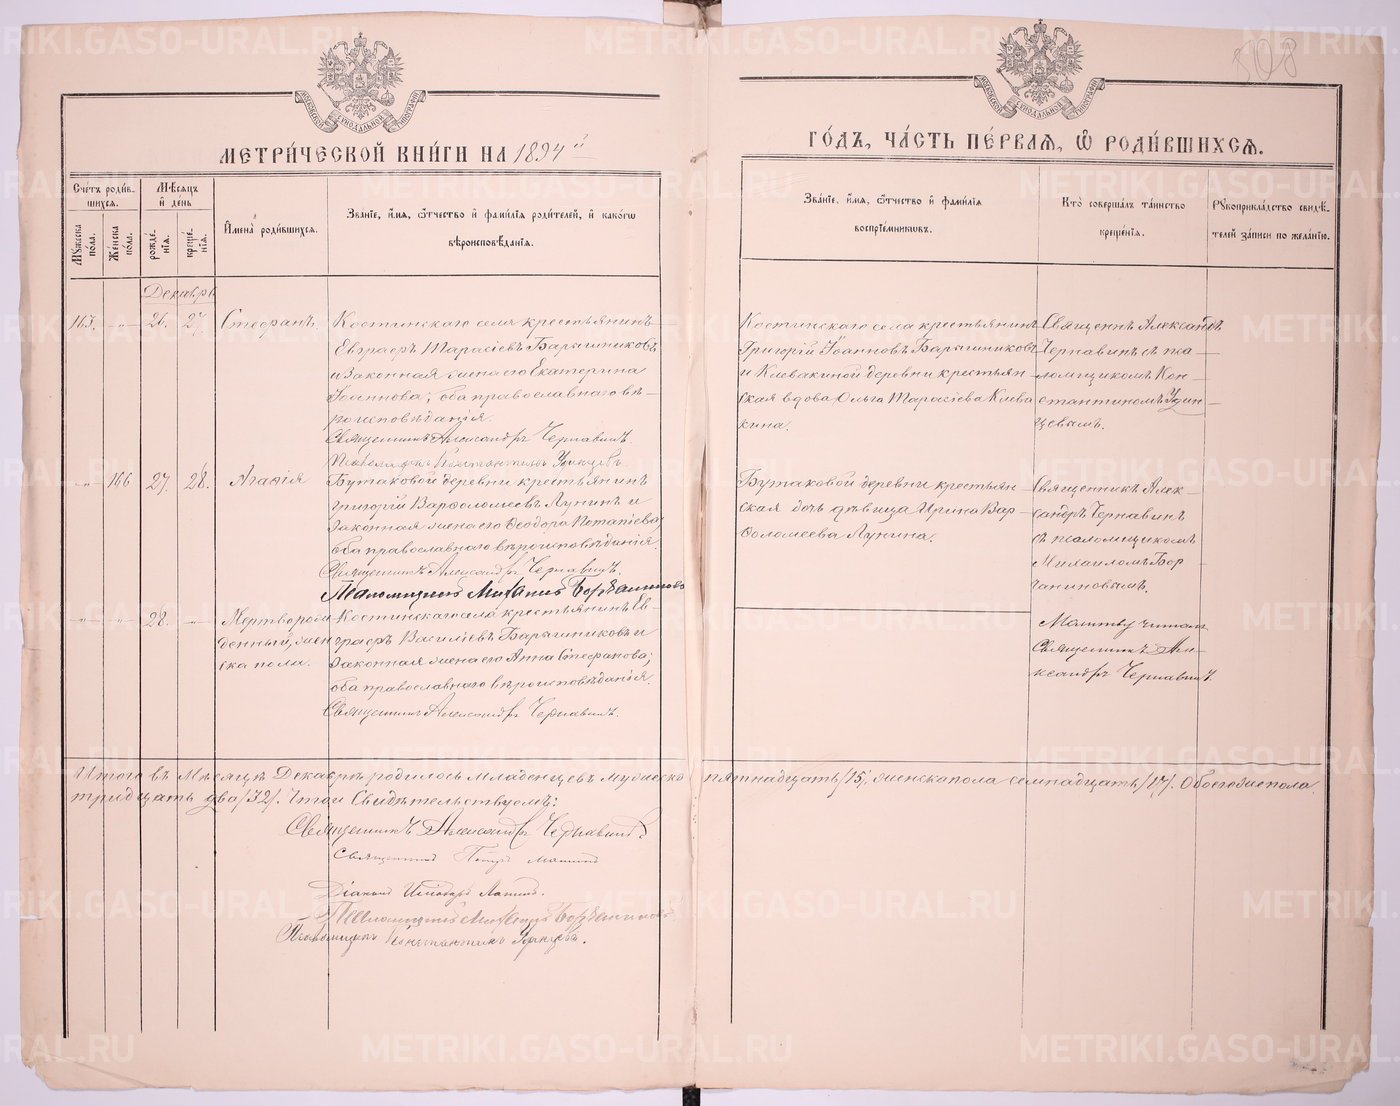 508
МЕТРИ́ЧЕСКОЙ КНИ́ГИ НА 1894й
ГО́ДЪ, ЧА́СТЬ ПЕ́РВАѦ, Ѡ҆ РОДИ́ВШИХСѦ.
Сче́тъ роди́вшихсѧ.
Мꙋ́жеска по́ла.
Же́нска по́ла.
Мѣ́сѧцъ и҆ де́нь
рожде́нїѧ.
креще́нїѧ.
И҆мена̀ роди́вшихсѧ.
Зва́нїе, и҆́мѧ, ѻ҆́тчество и҆ фами́лїѧ роди́телей, и҆ како́гѡ
вѣроисповѣ́данїѧ.
Зва́нїе, и҆́мѧ, ѻ҆́тчество и҆ фами́лїѧ
воспрїе́мникѡвъ.
Кто̀ соверша́лъ та́инство
креще́нїѧ.
Рꙋкоприкла́дство свидѣ́-
телей за́писи по жела́нїю.
Декабрь
165. -"- 26. 27. Стефанъ.
Костинскаго села крестьянинъ
Евграфъ Тарасіевъ Барышниковъ
и законная жена его Екатерина
Іоаннова; оба православнаго вѣ-
роисповѣданія.
Священникъ Александръ Чернавинъ.
Псаломщикъ Константинъ Удинцевъ.
Костинскаго села крестьянинъ
Григорій Іоанновъ Барышниковъ
и Клевакиной деревни крестьян-
ская вдова Ольга Тарасіева Клева
кина.
Священникъ Александръ
Чернавинъ съ пса-
ломщикомъ Кон-
стантиномъ Удин-
цевымъ.
-"- 166 27. 28. Агафія
Бутаковой деревни крестьянинъ
Григорій Варѳоломеевъ Лунинъ и
законная жена его Ѳеодора Потапіева;
оба православнаго вѣроисповѣданія.
Священникъ Александръ Чернавинъ.
Псаломщикъ Михаилъ
Бутаковой деревни крестьян-
ская дочь дѣвица Ирина Вар-
ѳоломеева Лунина.
Священникъ Алек-
сандръ Чернавинъ
съ псаломщикомъ
Михаиломъ Бор-
чаниновымъ.
-"- -"- 28. -"- Мертворож
денный, жен
ска пола.
Костинскаго села крестьянинъ Ев-
графъ Василіевъ Барышниковъ и
законная жена его Анна Стефанова;
оба православнаго вѣроисповѣданія.
Священникъ Александръ Чернавинъ.
Молитву читалъ
Священникъ Але-
ксандръ Чернавинъ.
Итого въ Мѣсяцѣ Декабрѣ родилось младенцевъ мужеско пятнадцать /15/, женска пола семнадцать /17/. Обоего же пола
тридцать два /32/. Что и Свидѣтельствуемъ:
Священникъ Александръ Чернавинъ.
Священникъ Петръ
Діаконъ
Псаломщикъ Михаилъ
Псаломщикъ Константинъ Удинцевъ.
METRIKI.GASO-URAL.RU